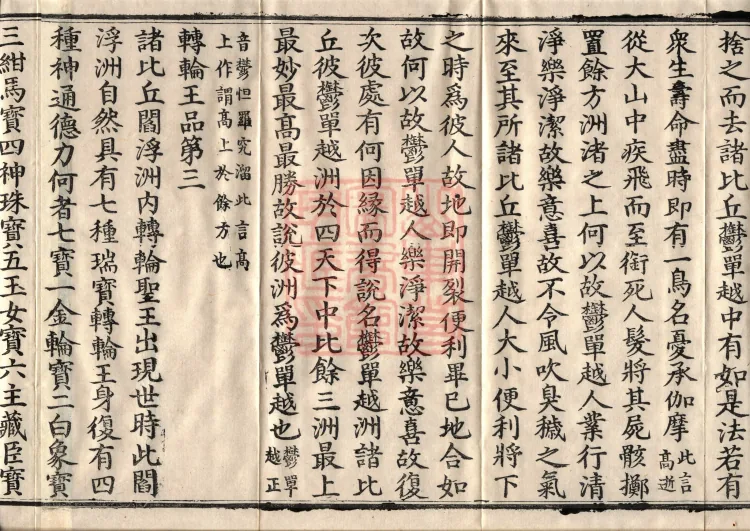 捨之而去諸比丘鬱單越中有如是法若有
衆生壽命盡時即有一鳥名憂承伽摩此言高逝
從大山中疾飛而至銜死人髮將其屍骸擲
置餘方洲渚之上何以故鬱單越人業行清
淨樂淨潔故樂意喜故不令風吹臭穢之氣
來至其所諸比丘鬱單越人大小便利將下
之時爲彼人故地即開裂便利畢已地合如
故何以故鬱單越人樂淨潔故樂意喜故復
次彼處有何因緣而得說名鬱單越洲諸比
丘彼鬱單越洲於四天下中比餘三洲最上
最妙最高最勝故說彼洲爲鬱單越也鬱單越正
音鬱怛羅究溜此言高
上作謂高上於餘方也
轉輪王品第三
諸比丘閻浮洲內轉輪聖王出現世時此閻
浮洲自然具有七種瑞寶轉輪王身復有四
種神通德力何者七寶一金輪寶二白象寶
三紺馬寶四神珠寶五玉女寶六主藏臣寶